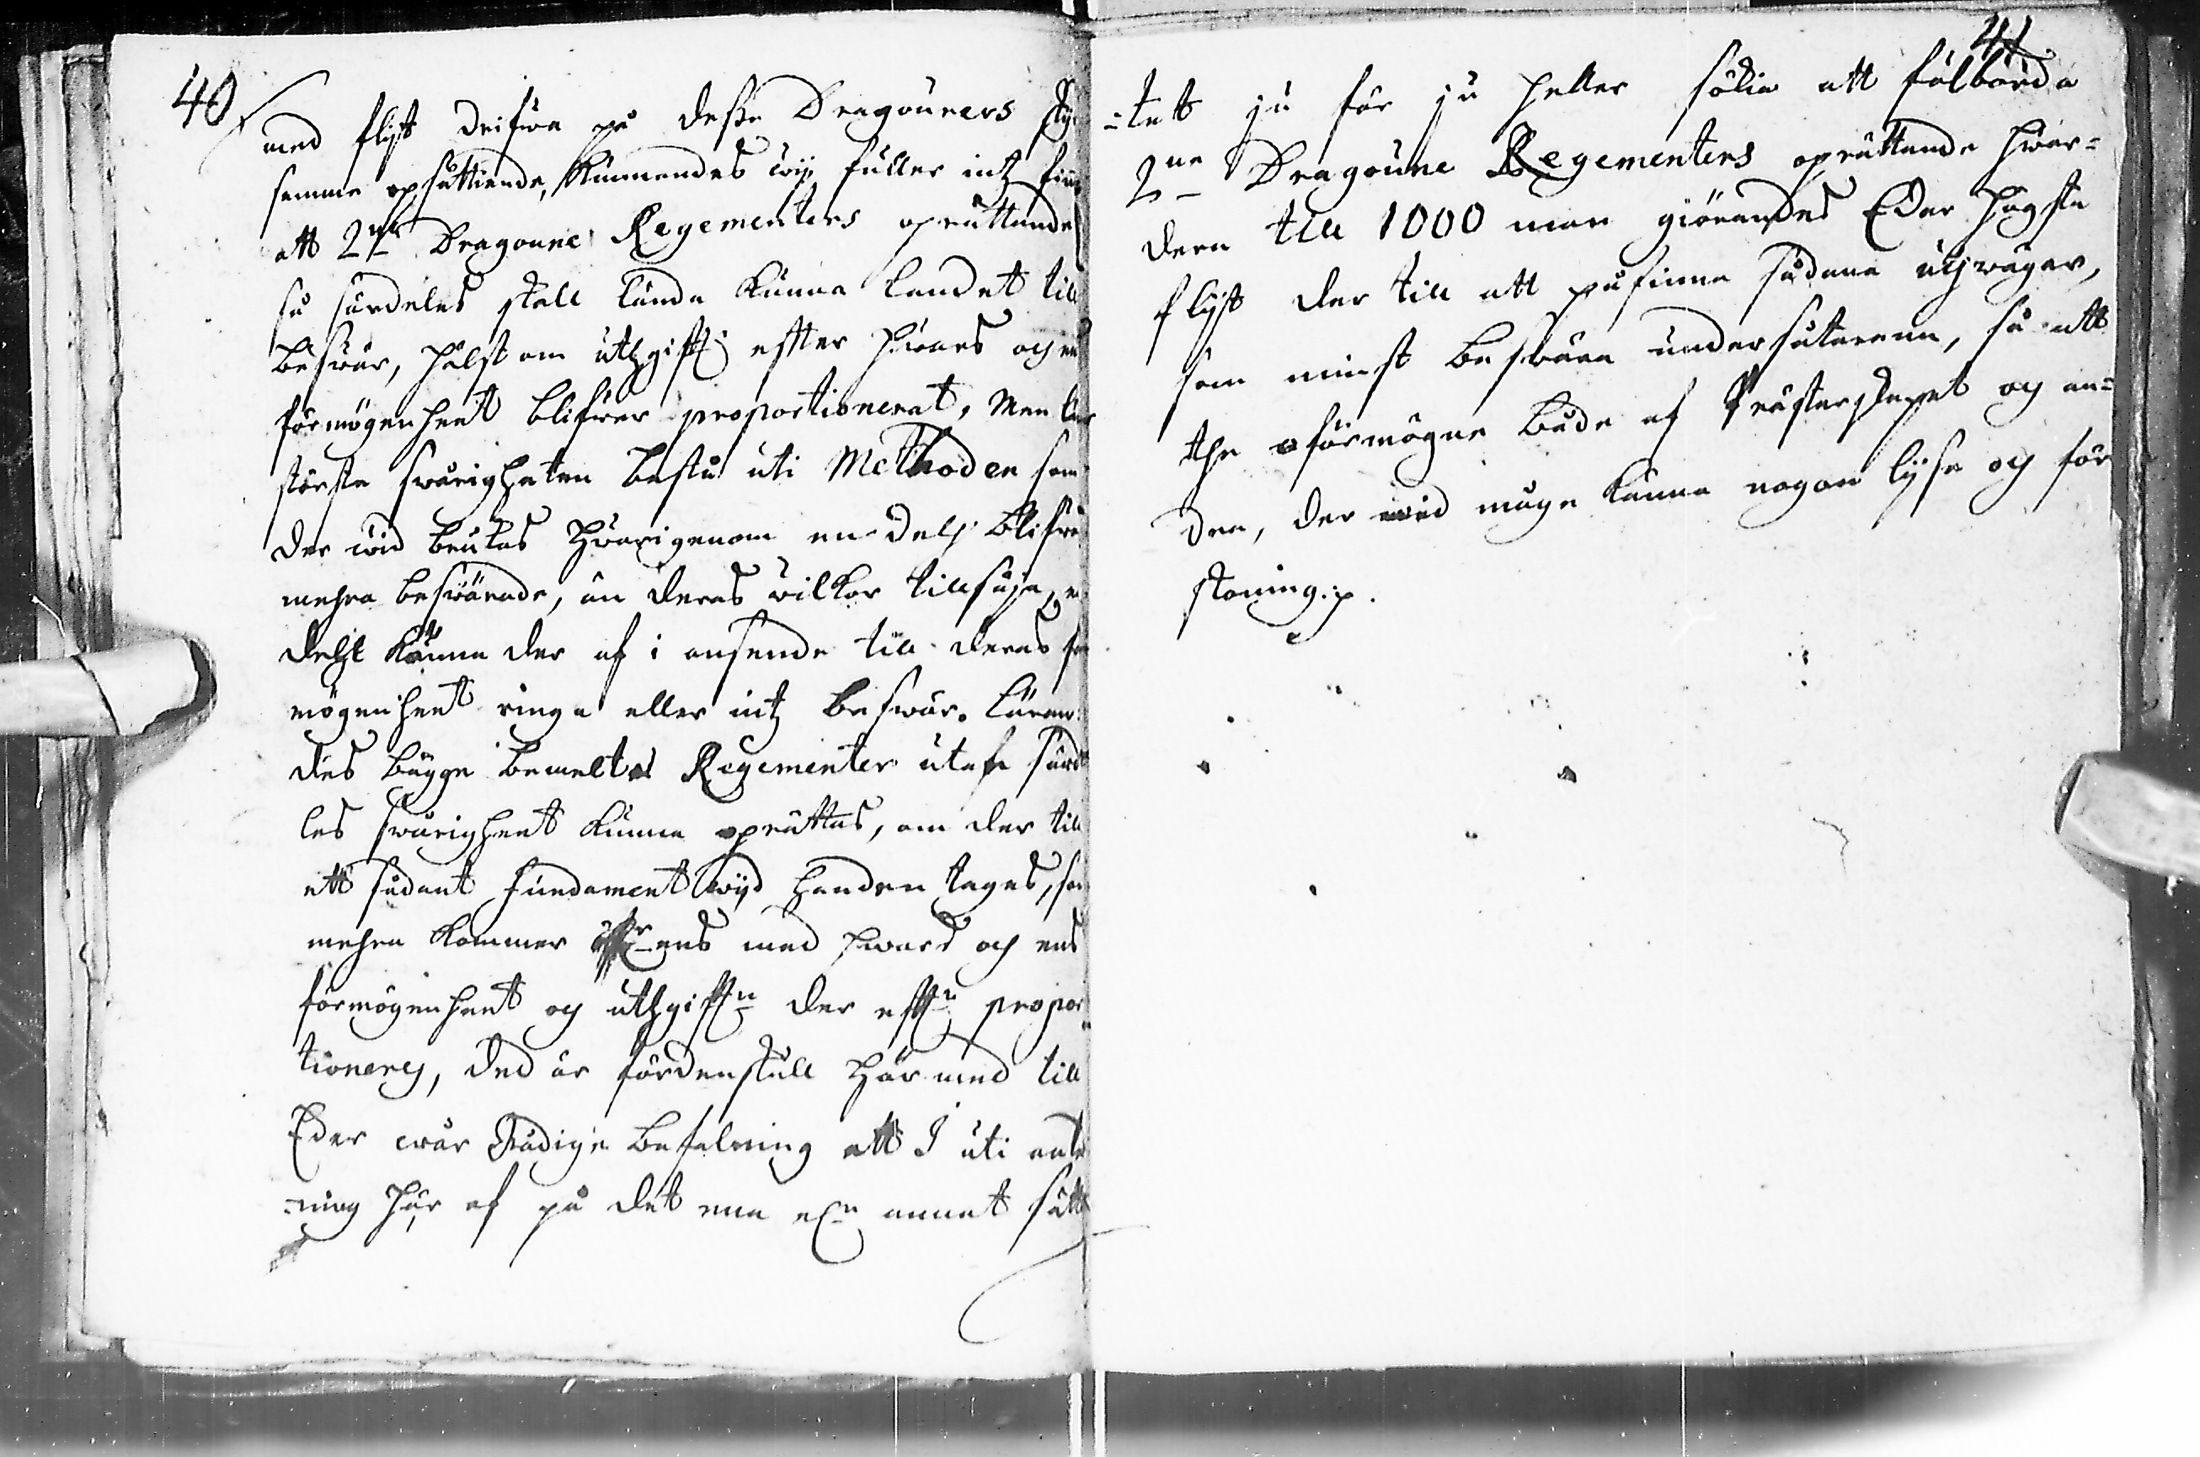 40
med flijt drifwa på desse Dragouners
samma opsättiande, Kunnandes wij fuller intz finna
att 2ne Dragoune Regementers oprättande
så särdeles skall lända kunna landet till
beswär, hälst om uthgifft: effter hwars och ens
förmögenheet blifwer proportionerat, Men lär
största swårigheten bestå uti Methoden som
der wid brukas hwarigenom en dehl blifwa
mehra beswärade, än deras wilkor tillsäja, en
dehl känna der af i anseende till deras för
mögenheet ringa eller intz beswär. Läran
des bägge bemelte Regementer utahn särde
les swårigheet kunna oprättas, om der till
ett sådant fundament wijd handen tages, som
mehra kommer öfwer ens med hwars och ens
förmögenheet och uthgifften der efter propor
tioneras, ded är fördenskull här med till
Eder wår Nådige befalning att I uti anled
ning här af på det ena eller annat sätt
41
-tett ju för ju heller sökia att fulborda
2ne Dragoune Regementers oprättande hwar=
dera till 1000 man giörandes Eder högsta
flijt der till att påfinna sådana uthwägar,
som minst beswära undersåtarena, så att
the oförmögne både af Prästerskapet och an=
dra, der wid måge kunna någon lijsa och för
skoning. p.